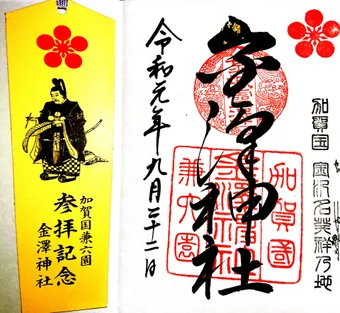 加賀国兼六園
参拝記念
金澤神社
加賀国 金沢名発祥乃地
金澤神社
加賀國
金澤神社
兼六園
令和元年九月二十二日